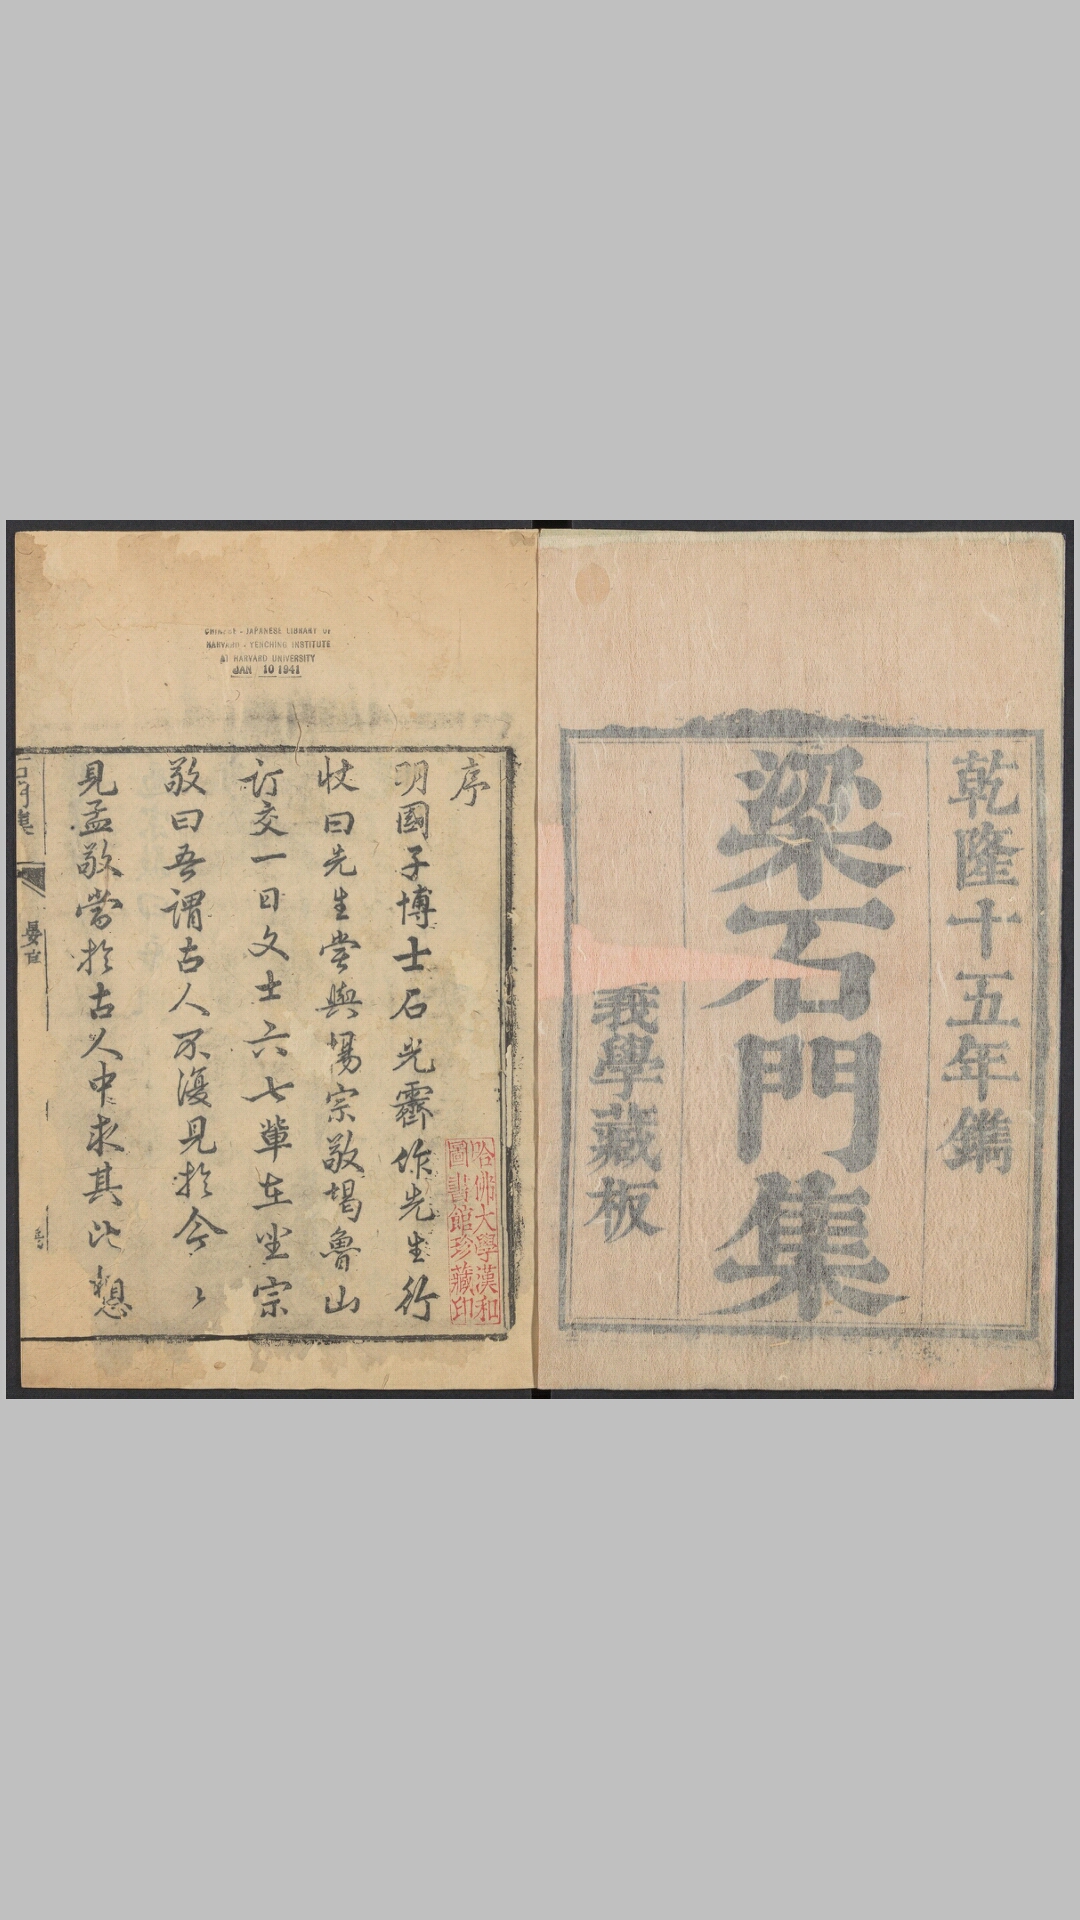 乾隆十五年鐫
梁石門集
義學藏板
CHINESE - JAPANESE LIBRARY OF
HARVARD - YENCHING INSTITUTE
AT HARVARD UNIVERSITY
JAN 10 1941
序
明國子博士石光霽作先生行
狀曰先生嘗與塲宗敬堨魯山
訂交一日文士六七輩在坐宗
敬曰吾謂古人不復見於今〻
見孟敬當於古人中求其比想
哈佛大學漢和
圖書館珍藏印
石門集
晏序